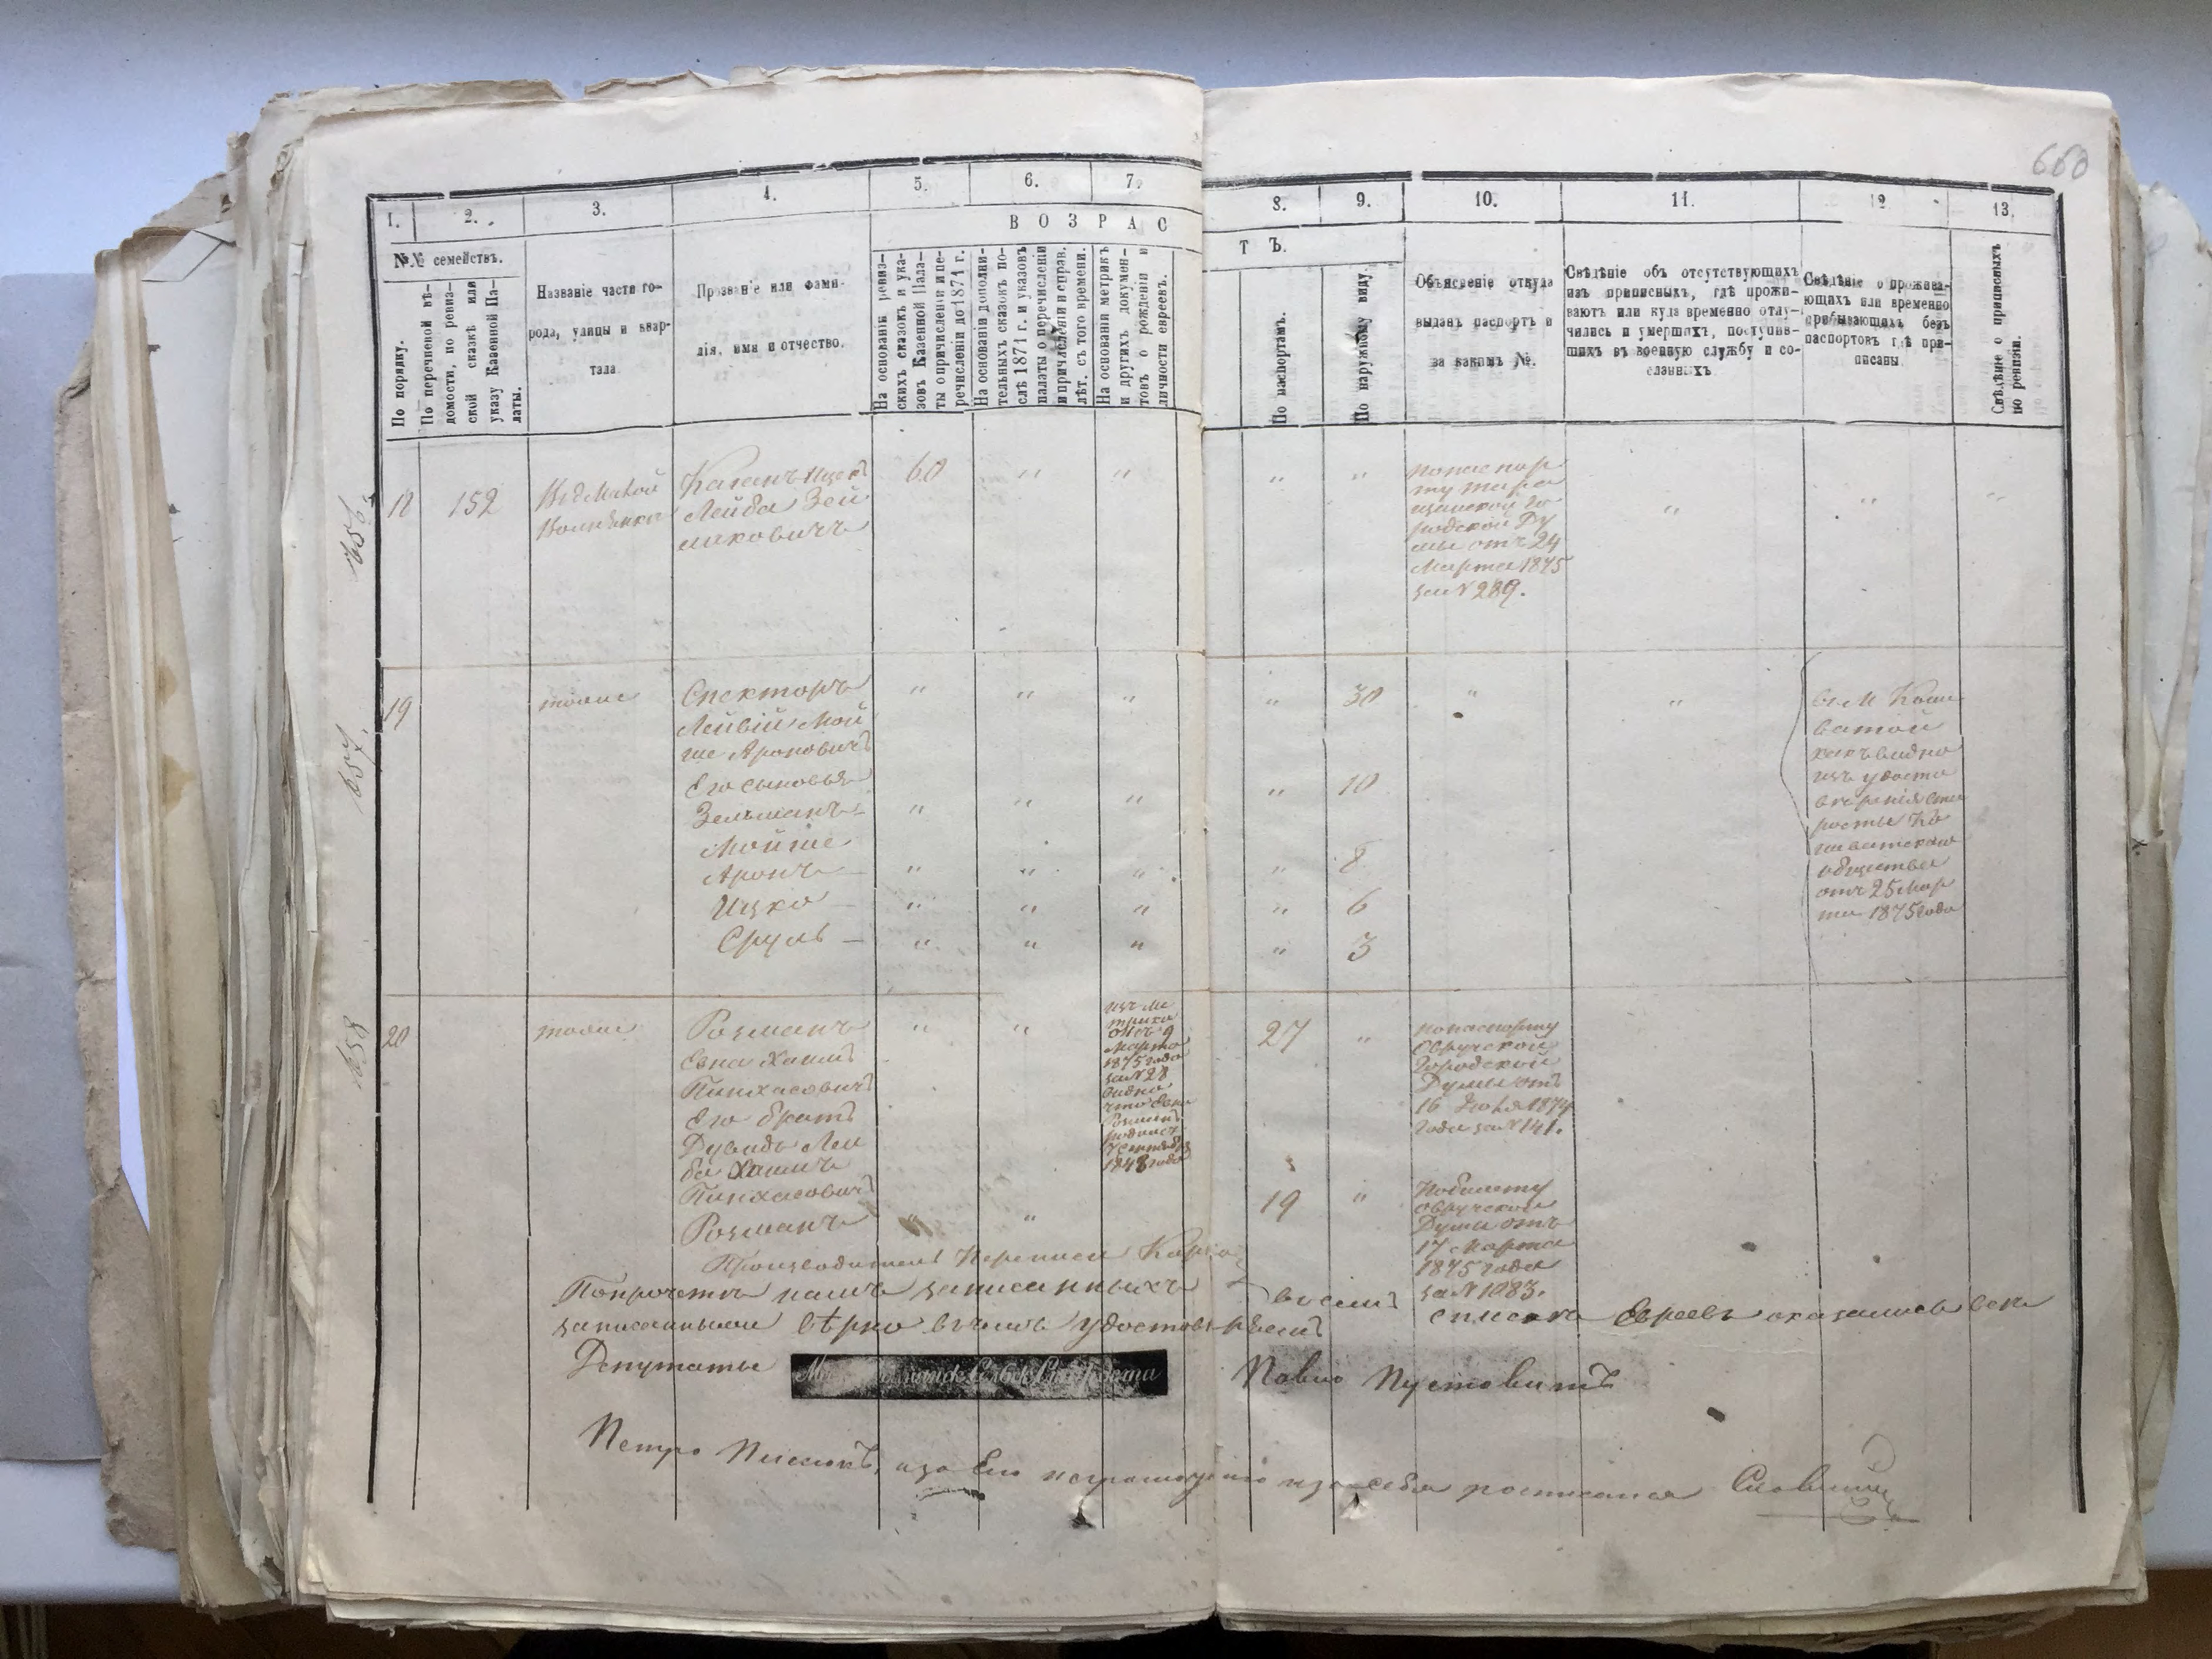 660
1.
2.
3.
4.
5.
6.
7.
8.
9.
10.
11.
12
13.
В О З Р А С
Т Ъ.
№№ семействъ.
По порядку.
По перечневой вѣ-
домости, по ревиз-
ской сказкѣ или
указу Казенной Па-
латы.
Названіе части го-
рода, улицы и квар-
тала
Прозваніе или фами-
лія, имя и отчество.
На основаніи ревиз-
скихъ сказокъ и ука-
зовъ Казенной Пала-
ты о причисленіи и пе-
речисленіи до 1871 г.
На основаніи дополни-
тельныхъ сказокъ по-
слѣ 1871 г. и указовъ
палаты о перечисленіи
и причисленіи и справ.
лѣт. съ того времени.
На основаніи метрикъ
и другихъ докумен-
товъ о рожденіи и
личности евреевъ.
По паспортамъ.
По наружному виду.
Объясненіе откуда
выданъ паспортъ и
за какимъ №.
Свѣдѣніе объ отсутствующихъ
изъ приписныхъ, гдѣ прожи-
ваютъ или куда временно отлу-
чились и умершихъ, поступив-
шихъ въ военную службу и со-
сланныхъ
Свѣдѣніе о прожива-
ющихъ или временно
прибывающихъ безъ
паспортовъ гдѣ при-
писаны
Свѣдѣніе о приписныхъ
по ревизіи.
1656
18 152
Каганъ Ицко
Лейба Зей
60
по паспор
ту Тара
щанской Го
родской Ду
мы отъ 24
Марта 1875
за № 289.
1657
19 тоже
Спекторъ
Мой
ше Ароновичъ
30
Его сыновья
Зельманъ — 10
Мойше
Аронъ — 8
Ицко — 6
Сруль — 3
въ М Коши
ватой
какъ видно
изъ удосто
вѣренія Ста
росты Ко
шеватскаго
общества
отъ 25 Мар
та 1875 года
1658
20 тоже
Розманъ
Евна Хаимъ
Пинхасовичъ
Его братъ
Дувидъ Лей
ба Хаимъ
Пинхасовичъ
Розманъ
изъ Ме
трики
отъ 9
Марта
1875 года
за № 28
видно
что Евна
Розманъ
родился
Сентября
1848 года
27
по паспорту
Овручской
Городской
Думы отъ
16 Іюля 1874
года за № 141.
19
По билету
Овручской
Думы отъ
17 Марта
1875 года
за № 1083.
Производитель Переписи
По прочетѣ нами записанныхъ въ семъ спискѣ Евреевъ оказались все
записанными вѣрно въ чемъ удостовѣряемъ
Депутаты
Павло Пустовитъ
Петро